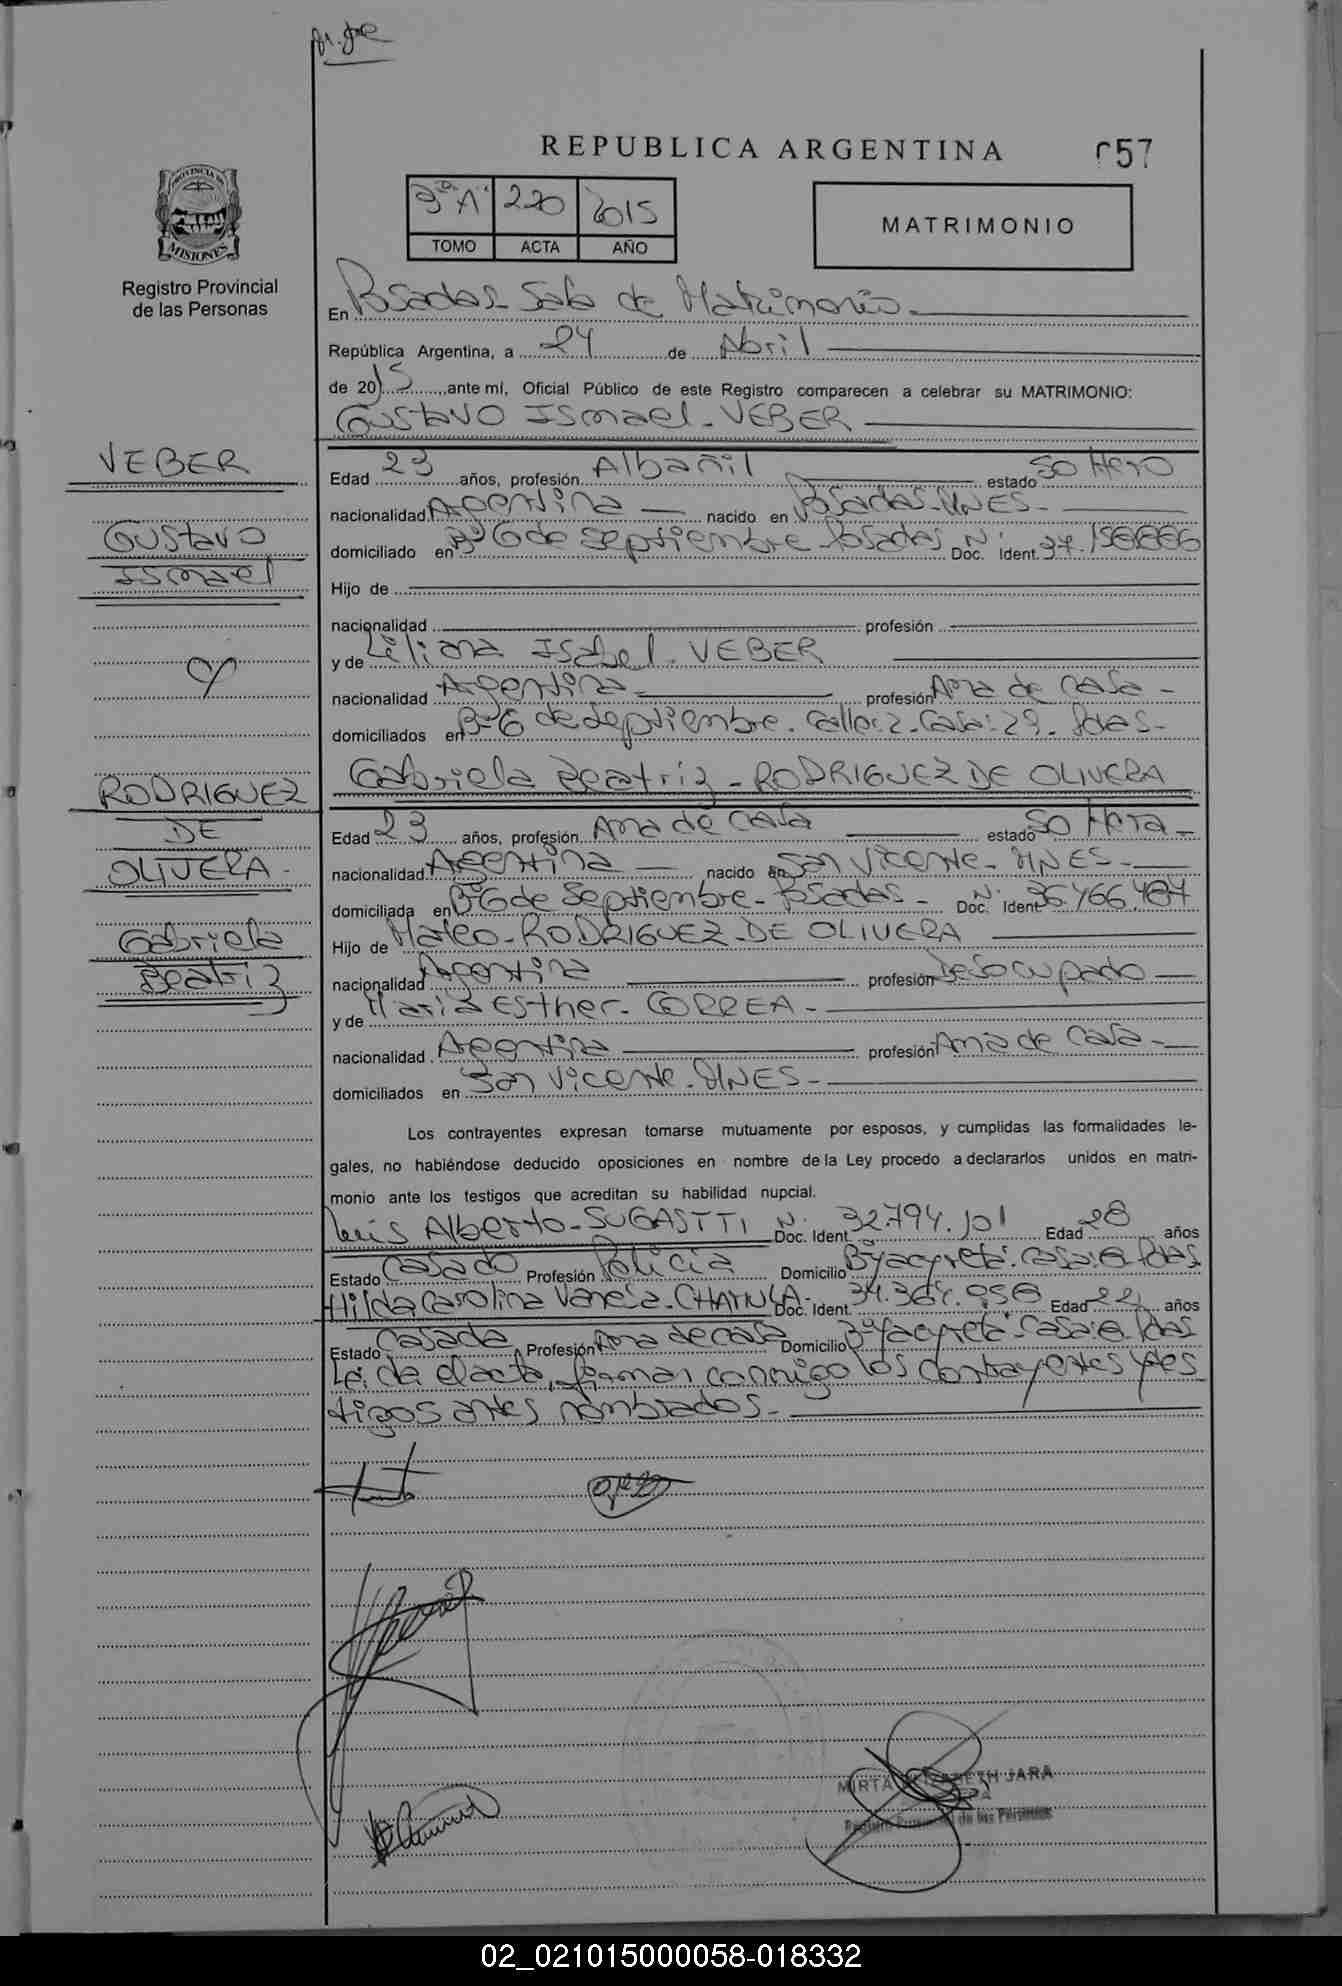 REPUBLICA ARGENTINA
57
PROVINCIA DE
MISIONES
Registro Provincial
de las Personas
3º "A" 220 2015
TOMO ACTA AÑO
MATRIMONIO
En Posadas - Sala de Matrimonio -
República Argentina, a 24 de Abril
de 2015, ante mí, Oficial Público de este Registro comparecen a celebrar su MATRIMONIO:
Gustavo Ismael - VEBER
VEBER
Gustavo
Ismael
y
RODRIGUEZ
DE
OLIVERA -
Gabriela
Beatriz
Edad 23 años, profesión Albañil estado Soltero
nacionalidad Argentina - nacido en Posadas - MNES -
domiciliado en Bº 6 de Septiembre - Posadas Doc. Nº Ident. 37.
Hijo de
nacionalidad profesión
y de Liliana Isabel - VEBER
nacionalidad Argentina - profesión Ama de Casa -
domiciliados en Bº 6 de Septiembre - Calle: 2 - Casa: 29 - Pdas -
Gabriela Beatriz - RODRIGUEZ DE OLIVERA
Edad 23 años, profesión Ama de Casa estado Soltera -
nacionalidad Argentina - nacido en San Vicente - MNES -
domiciliada en Bº 6 de Septiembre - Posadas - Doc. Nº Ident 36.466.484
Hijo de Mateo - RODRIGUEZ DE OLIVERA
nacionalidad Argentina profesión Desocupado -
y de Maria Esther - CORREA -
nacionalidad Argentina profesión Ama de Casa -
domiciliados en San Vicente - MNES -
Los contrayentes expresan tomarse mutuamente por esposos, y cumplidas las formalidades le-
gales, no habiéndose deducido oposiciones en nombre de la Ley procedo a declararlos unidos en matri-
monio ante los testigos que acreditan su habilidad nupcial.
Luis Alberto - SUGASTTI Nº Doc. Ident 32.794.101 Edad 28 años
Estado Casado Profesión Policia Domicilio Bº Yacyreta - Casa: Pdas
Hilda Carolina Vanesa - Doc. Ident. 34. Edad años
Estado Casada Profesión Ama de casa Domicilio Bº Yacyreta - Casa: Pdas
Leida el acta, firman conmigo los contrayentes y tes
tigos antes nombrados -
MIRTA ELIZABETH JARA
Registro Provincial de las Personas
02_021015000058-018332